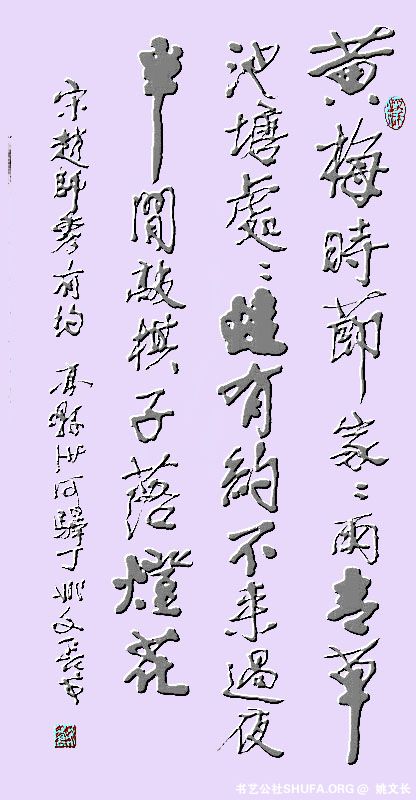 黄梅時節家〻雨青草
池塘處〻蛙有約不来過夜
半間敲棋子落燈花
宋趙師秀有约 河驛丁 姚文長
书艺公社SHUFA.ORG @ 姚文长